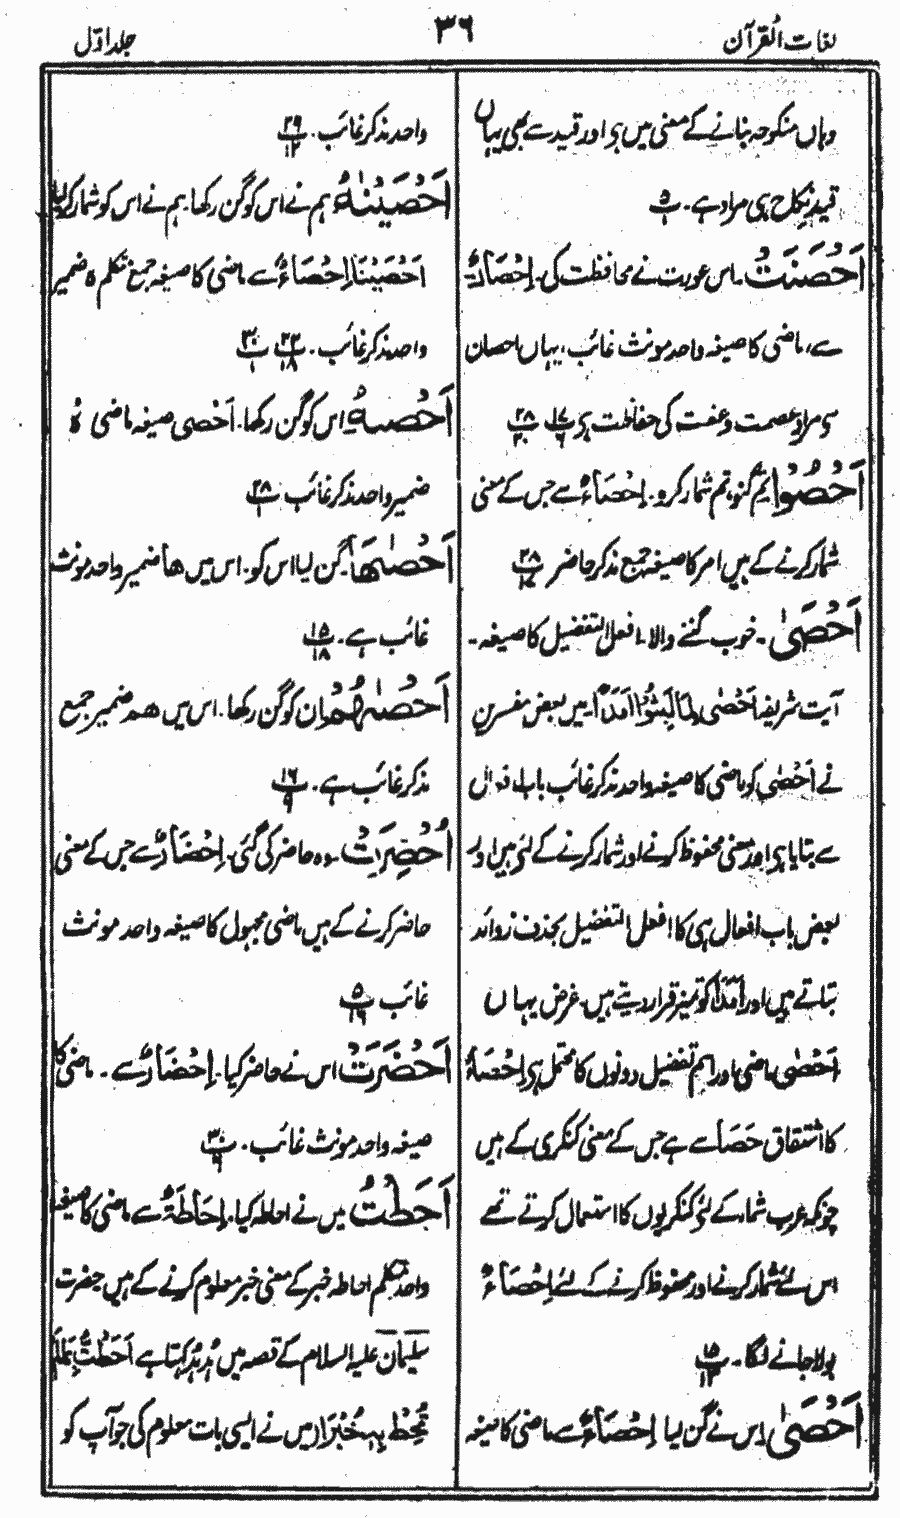 لغات القرآن
۳۶
جلد اوّل
وہاں منکوحہ بنانے کے معنی میں ہی اور قید سے بھی یہاں
قیدِ نکاح ہی مراد ہے۔ ۵/۱
اَحْصَنَتْ۔ اس عورت نے محافظت کی۔ اِحْصَانٌ
سے، ماضی کا صیغہ واحد مونث غائب، یہاں احصان
سے مراد عصمت و عفت کی حفاظت ہی ۱۷/۶ ۲۸/۲۰
اَحْصُوْا تم گنو، تم شمار کرو۔ اِحْصَاءٌ سے جس کے معنی
شمار کرنے کے ہیں امر کا صیغہ جمع مذکر حاضر ۲۸/۱۷
اَحْصٰی۔ خوب گننے والا۔ افعل التفضیل کا صیغہ۔
آیت شریفہ اَحْصٰی لِمَا لَبِثُوْا اَمَدًا۔ میں بعض مفسرین
نے اَحْصٰی کو ماضی کا صیغہ واحد مذکر غائب باب افعال
سے بتایا ہی اور معنی محفوظ کرنے اور شمار کرنے کے لئے ہیں اور
بعض باب افعال ہی کا افعل التفضیل بحذف زوائد
بتاتے ہیں اور اَمَدًا کو تمیز قرار دیتے ہیں۔ غرض یہاں
اَحْصٰی ماضی اور اسم تفضیل دونوں کا محتمل ہی اِحْصَاءٌ
کا اشتقاق حَصَاۃ سے ہے جس کے معنی کنکری کے ہیں
چونکہ عرب شمار کے لئے کنکریوں کا استعمال کرتے تھے
اس لئے شمار کرنے اور محفوظ کرنے کے لئے اِحْصَاءٌ
بولا جانے لگا۔ ۱۵/۱۳
اَحْصٰی اس نے گن لیا اِحْصَاءٌ سے ماضی کا صیغہ
واحد مذکر غائب۔ ۲۹/۱۲
اَحْصَیْنٰہُ ہم نے اس کو گن رکھا۔ ہم نے اس کو شمار کر لیا
اَحْصَیْنَا اِحْصَاءٌ سے ماضی کا صیغہ جمع متکلم ہ ضمیر
واحد مذکر غائب۔ ۲۲/۱۸ ۳۰/۱
اَحْصٰہُ اس کو گن رکھا۔ اَحْصٰی صیغہ ماضی ہٗ
ضمیر واحد مذکر غائب ۲۸/۱
اَحْصٰھَا۔ گن لیا اس کو۔ اس میں ھا ضمیر واحد مونث
غائب ہے۔ ۱۵/۱۸
اَحْصٰىهُمْ ان کو گن رکھا۔ اس میں ھم ضمیر جمع
مذکر غائب ہے۔ ۱۶/۹
اُحْضِرَتْ۔ وہ حاضر کی گئی۔ اِحْضَارٌ سے جس کے معنی
حاضر کرنے کے ہیں ماضی مجہول کا صیغہ واحد مونث
غائب ۵/۱۶
اَحْضَرَتْ اس نے حاضر کیا۔ اِحْضَارٌ سے۔ ماضی کا
صیغہ واحد مونث غائب۔
اَحَطْتُّ میں نے احاطہ کیا۔ اِحَاطَۃٌ سے ماضی کا صیغہ
واحد متکلم احاطہ خبر کے معنی خبر معلوم کرنے کے ہیں حضرت
سلیمان علیہ السلام کے قصہ میں ہُدہُد کہتا ہے اَحَطْتُّ بِمَا لَمْ
تُحِطْ بِہٖ خُبْرًا میں نے ایسی بات معلوم کی جو آپ کو